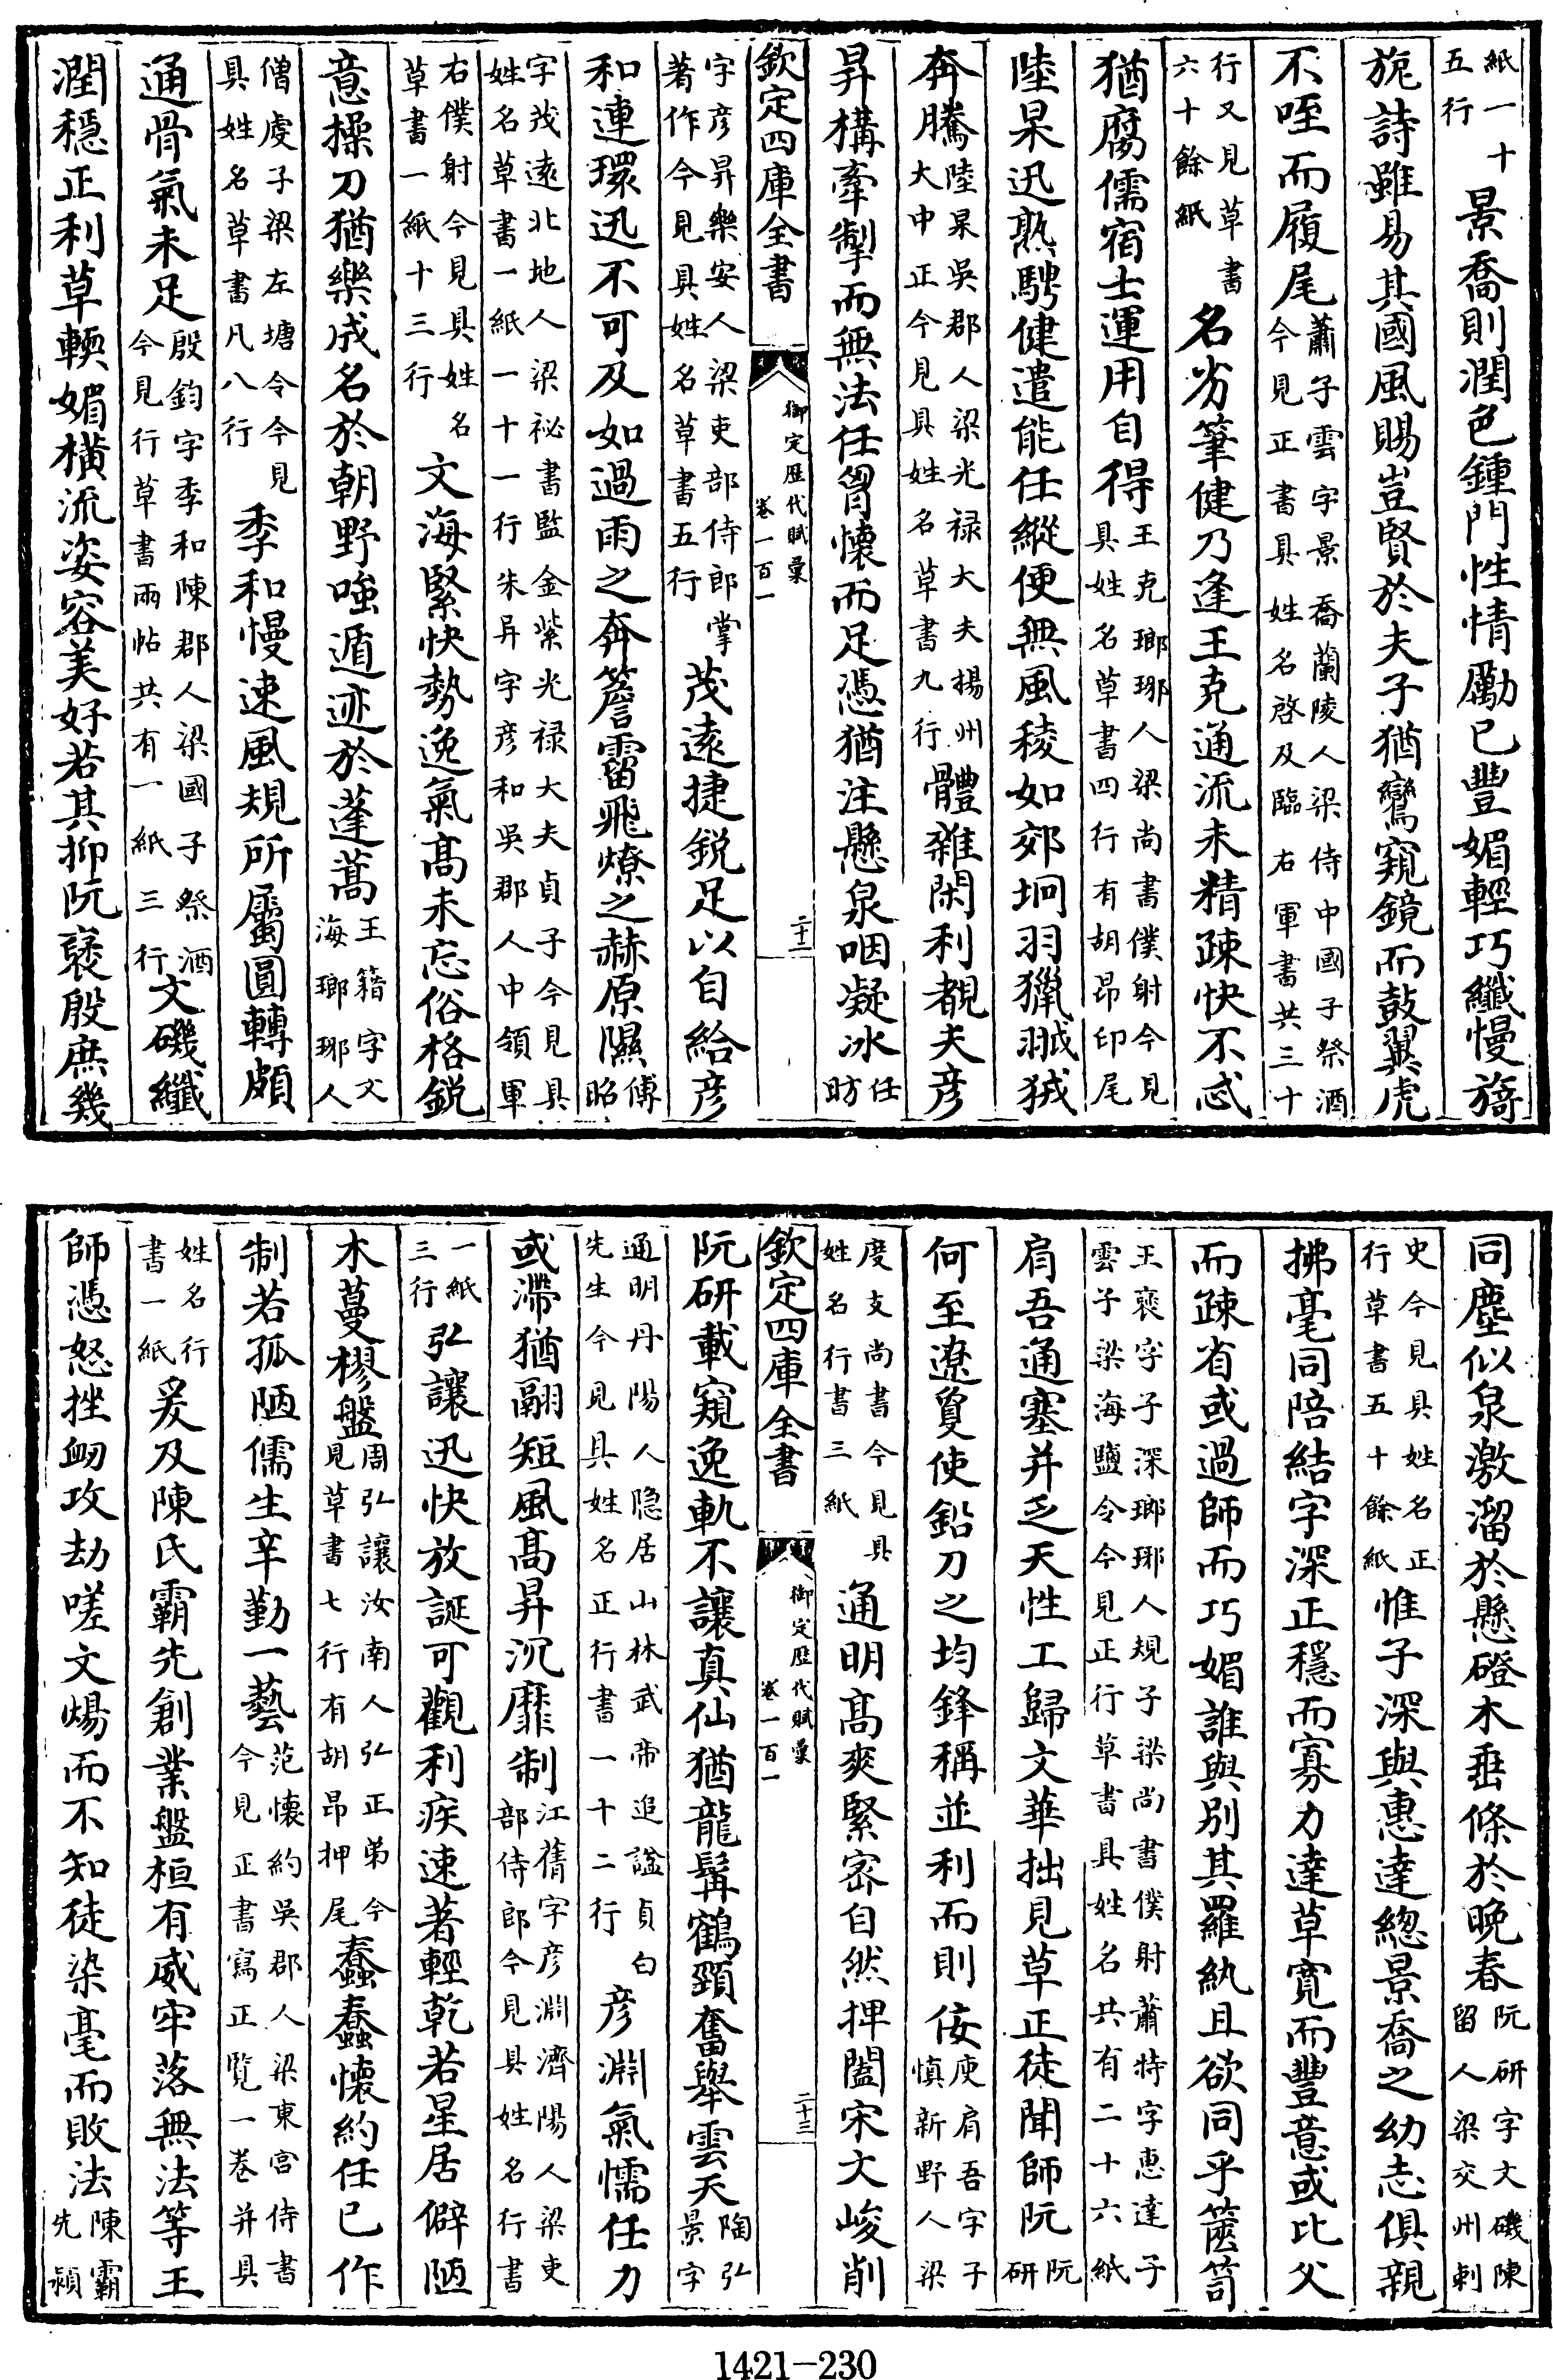 紙一十五行景喬則潤色鍾門性情勵已豐媚輕巧纖慢旖
旎詩雖易其國風賜豈賢於夫子猶鸞窺鏡而鼓翼虎
不咥而履尾蕭子雲字景喬蘭陵人梁侍中國子祭酒今見正書具姓名啓及臨右軍書共三十
行又見草書六十餘紙名劣筆健乃逢王克通流未精疎快不忒
猶腐儒宿士運用自得王克瑯琊人梁尚書僕射今見具姓名草書四行有胡昂印尾
陸杲迅熟騁健遣能任縱便無風稜如郊坰羽獵㹤狘
奔騰陸杲吳郡人梁光禄大夫揚州大中正今見具姓名草書九行體雜閑利覩夫彦
昇搆牽掣而無法任胷懷而足憑猶注懸泉咽凝冰任昉
欽定四庫全書 御定歴代賦彙 卷一百一 二十二
字彦昇樂安人梁吏部侍郎掌著作今見具姓名草書五行茂遠捷鋭足以自給彦
和連環迅不可及如過雨之奔簷霤飛燎之赫原隰傅昭
字茂遠北地人梁祕書監金紫光禄大夫貞子今見具姓名草書一紙一十一行朱异字彦和吳郡人中領軍
右僕射今見具姓名草書一紙十三行文海緊快勢逸氣高未忘俗格鋭
意操刀猶樂成名於朝野嗤遁迹於蓬蒿王籍字文海瑯琊人
僧虔子梁左塘令今見具姓名草書凡八行季和慢速風規所屬圓轉頗
通骨氣未足殷鈞字季和陳郡人梁國子祭酒今見行草書兩帖共有一紙三行文磯纖
潤穩正利草輭媚横流姿容美好若其抑阮褒殷庶幾
同塵似泉激溜於懸磴木垂條於晚春阮研字文磯陳留人梁交州刺
史今見具姓名正行草書五十餘紙惟子深與惠達緫景喬之幼志俱親
拂毫同陪結字深正穩而寡力達草寛而豐意或比父
而疎省或過師而巧媚誰與别其羅紈且欲同乎篋笥
王裦字子深瑯琊人規子梁尚書僕射蕭特字惠達子雲子梁海鹽令今見正行草書具姓名共有二十六紙
肩吾通塞并乏天性工歸文華拙見草正徒聞師阮阮研
何至遼夐使鉛刀之均鋒稱並利而則佞庾肩吾字子慎新野人梁
度支尚書今見具姓名行書三紙通明高爽緊宻自然押闔宋文峻削
欽定四庫全書 御定歴代賦彙 卷一百一 二十三
阮研載窺逸軌不讓真仙猶龍髯鶴頸奮舉雲天陶弘景字
通明丹陽人隱居山林武帝追諡貞白先生今見具姓名正行書一十二行彦淵氣懦任力
或滯猶翮短風高昇沉靡制江蒨字彦淵濟陽人梁吏部侍郎今見具姓名行書
一紙三行弘讓迅快放誕可觀利疾速著輕乾若星居僻陋
木蔓樛盤周弘讓汝南人弘正弟今見草書七行有胡昂押尾蠢蠢懷約任已作
制若孤陋儒生辛勤一藝范懷約吳郡人梁東宫侍書今見正書寫正覽一卷并具
姓名行書一紙爰及陳氏霸先創業盤桓有威牢落無法等王
師憑怒挫衂攻劫嗟文煬而不知徒染毫而敗法陳霸先潁
1421-230